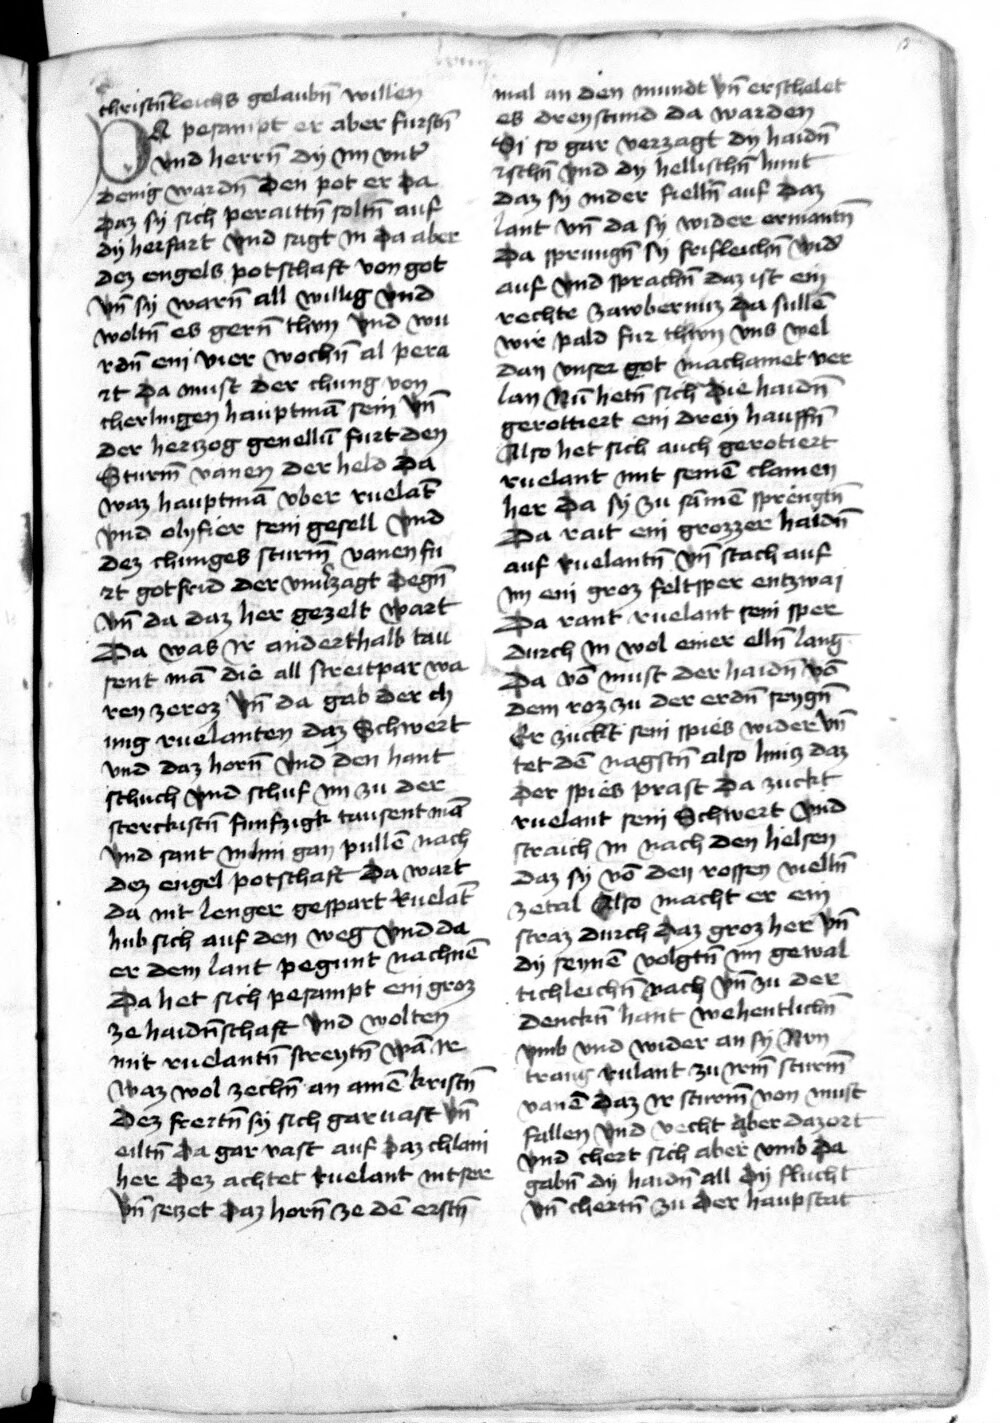 christnleichs gelaubn̄ willen
DA pesampt er aber furstn̄
vnd herrn̄ dy im vnter
denig wardn̄ Den pot er Da
Daz sy sich peraittn̄ soltn̄ auf
dy herfart vnd sagt in Da aber
dez engels potschaft von got
vn̄ sy warn̄ all willig vnd
woltn̄ es gern̄ thvn vnd wu
rdn̄ ein vier wochn̄ al pera
it Da must der chung von
cherlingen hauptmā sein vn̄
der hertzog genellū furt den
Sturm̄ vanen der held Da
waz hauptmā vber ruelāt
vnd olyfier sein gesell vnd
dez chunges sturm̄ vanen fu
rt gotfrid der vnuerzagt degn̄
vn̄ da daz her gezelt wart
Da was ir anderthalb tau
sent mā die all streitpar wa
ren zeroz vn̄ da gab der ch
unig ruelanten daz Schwert
vnd daz horn̄ vnd den hant
schuch vnd schuf im zu der
sterckistn̄ funfzigk tausent mā
vnd sant in hin gan pullē nach
dez engel potschaft Da wart
da nit lenger gespart Ruelāt
hub sich auf den weg vnd da
er dem lant pegunt nachnē
Da het sich pesampt ein groz
ze haidn̄schaft vnd wolten
mit ruelantn̄ streytn̄ wān ir
waz wol zechn̄ an ainē kristn̄
Dez frertn̄ sy sich gar vast vn̄
eiltn̄ Da gar vast auf Daz chlain
her Dez achtet ruelant nit ser
vn̄ setzet Daz horn̄ ze dē erstn̄
mal an den mundt vn̄ erschelet
es dreystund da warden
Di so gar verzagt dy haidn̄
ischn̄ vnd dy hellischn̄ hunt
daz sy nider fielln̄ auf Daz
lant vn̄ da sy wider ermantn̄
Da sprungn̄ sy frisleichn̄ wider
auf vnd sprachn̄ daz ist ein
rechte zawbernuz Da sullē
wir pald fur thvn vns wel
dan vnser got machamet ver
lan Nū hetn̄ sich die haidn̄
gerottiert ein drey hauffn̄
Also het sich auch gerotiert
ruelant mit seinē clainen
her Da sy zu sāmē sprengtn̄
Da rait ein grozzer haidn̄
auf ruelantn̄ vn̄ stach auf
im ein groz feltsper entzwai
Da rant ruelant sein sper
durch in wol einer elln̄ lang
Da vō must der haidn̄ vō
dem roz zu der erdn̄ seygn̄
Er zuckt sein spies wider vn̄
tet dē nagstn̄ also hintz daz
Der spies prast Da zuckt
ruelant sein Schwert vnd
straich in nach den helsen
daz sy vō den rossen vielln̄
zetal Also macht er ein
straz durch Daz groz her vn̄
dy seynē volgtn̄ im gewal
tichleichn̄ nach vn̄ zu der
denckn̄ hant wehentlichn̄
vmb vnd wider an sy Nvn
trang rulant zu irm̄ sturm̄
vanē Daz ir sturm̄ von must
fallen vnd vecht Aber daz ort
vnd chert sich aber vmb Da
gabn̄ dy haidn̄ all Dy flucht
vn̄ chertn̄ zu Der haupstat